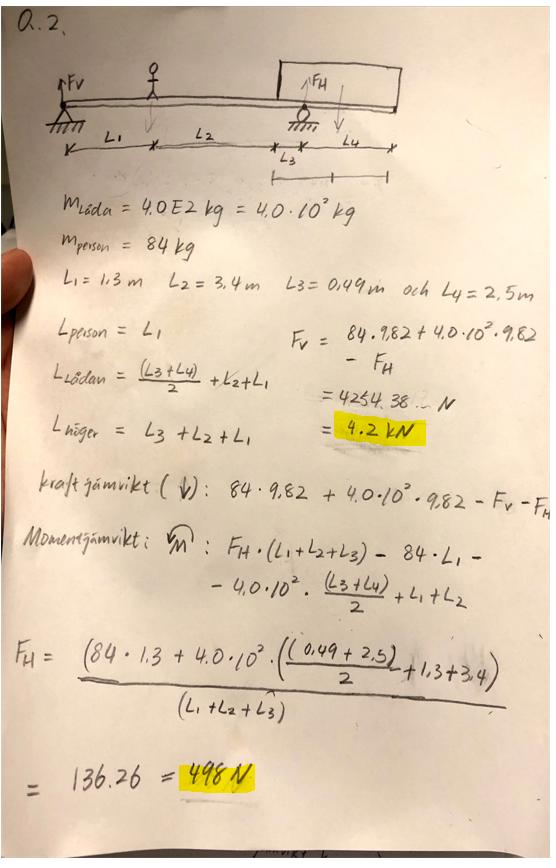 Q.2.
Fv
FH
L1 L2 L3 L4
mLåda = 4.0E2 kg = 4.0·10² kg
mperson = 84 kg
L1 = 1,3 m L2 = 3,4 m L3 = 0,49 m och L4 = 2,5 m
Lperson = L1
Fv = 84·9,82 + 4.0·10²·9,82
- FH
LLådan = (L3+L4)/2 + L2 + L1
= 4254.38... N
= 4.2 kN
Lhöger = L3 + L2 + L1
kraftjämvikt (↓): 84·9,82 + 4.0·10²·9,82 - Fv - FH
Momentjämvikt: M: FH·(L1+L2+L3) - 84·L1 -
- 4.0·10²· (L3+L4)/2 + L1 + L2
FH = (84·1.3 + 4.0·10²·((0,49+2,5)/2 + 1,3+3,4)
(L1+L2+L3)
= 136.26 = 498 N